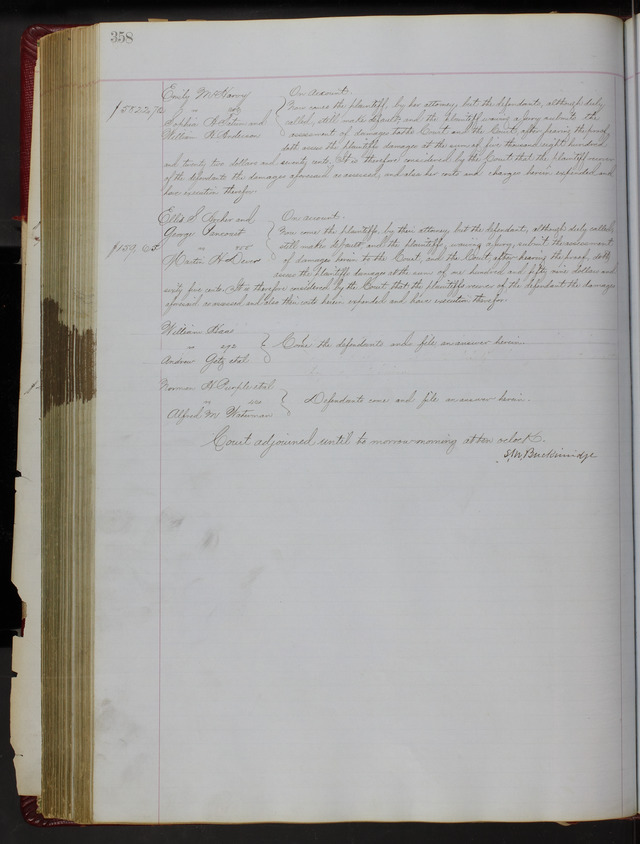 358
Emily M. On account.
$5822.70 Now comes the plaintiff, by her attorney, but the defendants, although duly
and called, still make default, and the plaintiff waiving a jury submits the
William H Anderson assessment of damages to the Court and the Court, after hearing the proof,
doth assess the plaintiffs damages at the sum of five thousand eight hundred
and twenty two dollars and seventy cents. It is therefore considered by the Court that the plaintiff recover
of the defendants the damages aforesaid as assessed, and also her costs and charges herein expended and
have execution therefor.
S. and On account.
George Now come the plaintiffs by their attorney but the defendant, although duly called,
$159. still makes default and the plaintiffs, waiving a jury, submit the assessment
Martin H of damages herein to the Court, and the Court after hearing the proof, doth
assess the plaintiffs damages at the sum of one hundred and fifty nine dollars and
sixty five cents. It is therefore considered by the Court that the plaintiffs recover of the defendant the damages
aforesaid as assessed and also their costs herein expended and have execution therefor.
William Haas
" Come the defendants and file an answer herein.
Andrew Getz et al
Norman H. Peeple et al
" Defendants come and file an answer herein.
Alfred M Waterman
Court adjourned until to morrow morning at ten oclock.
S. M. Breckinridge